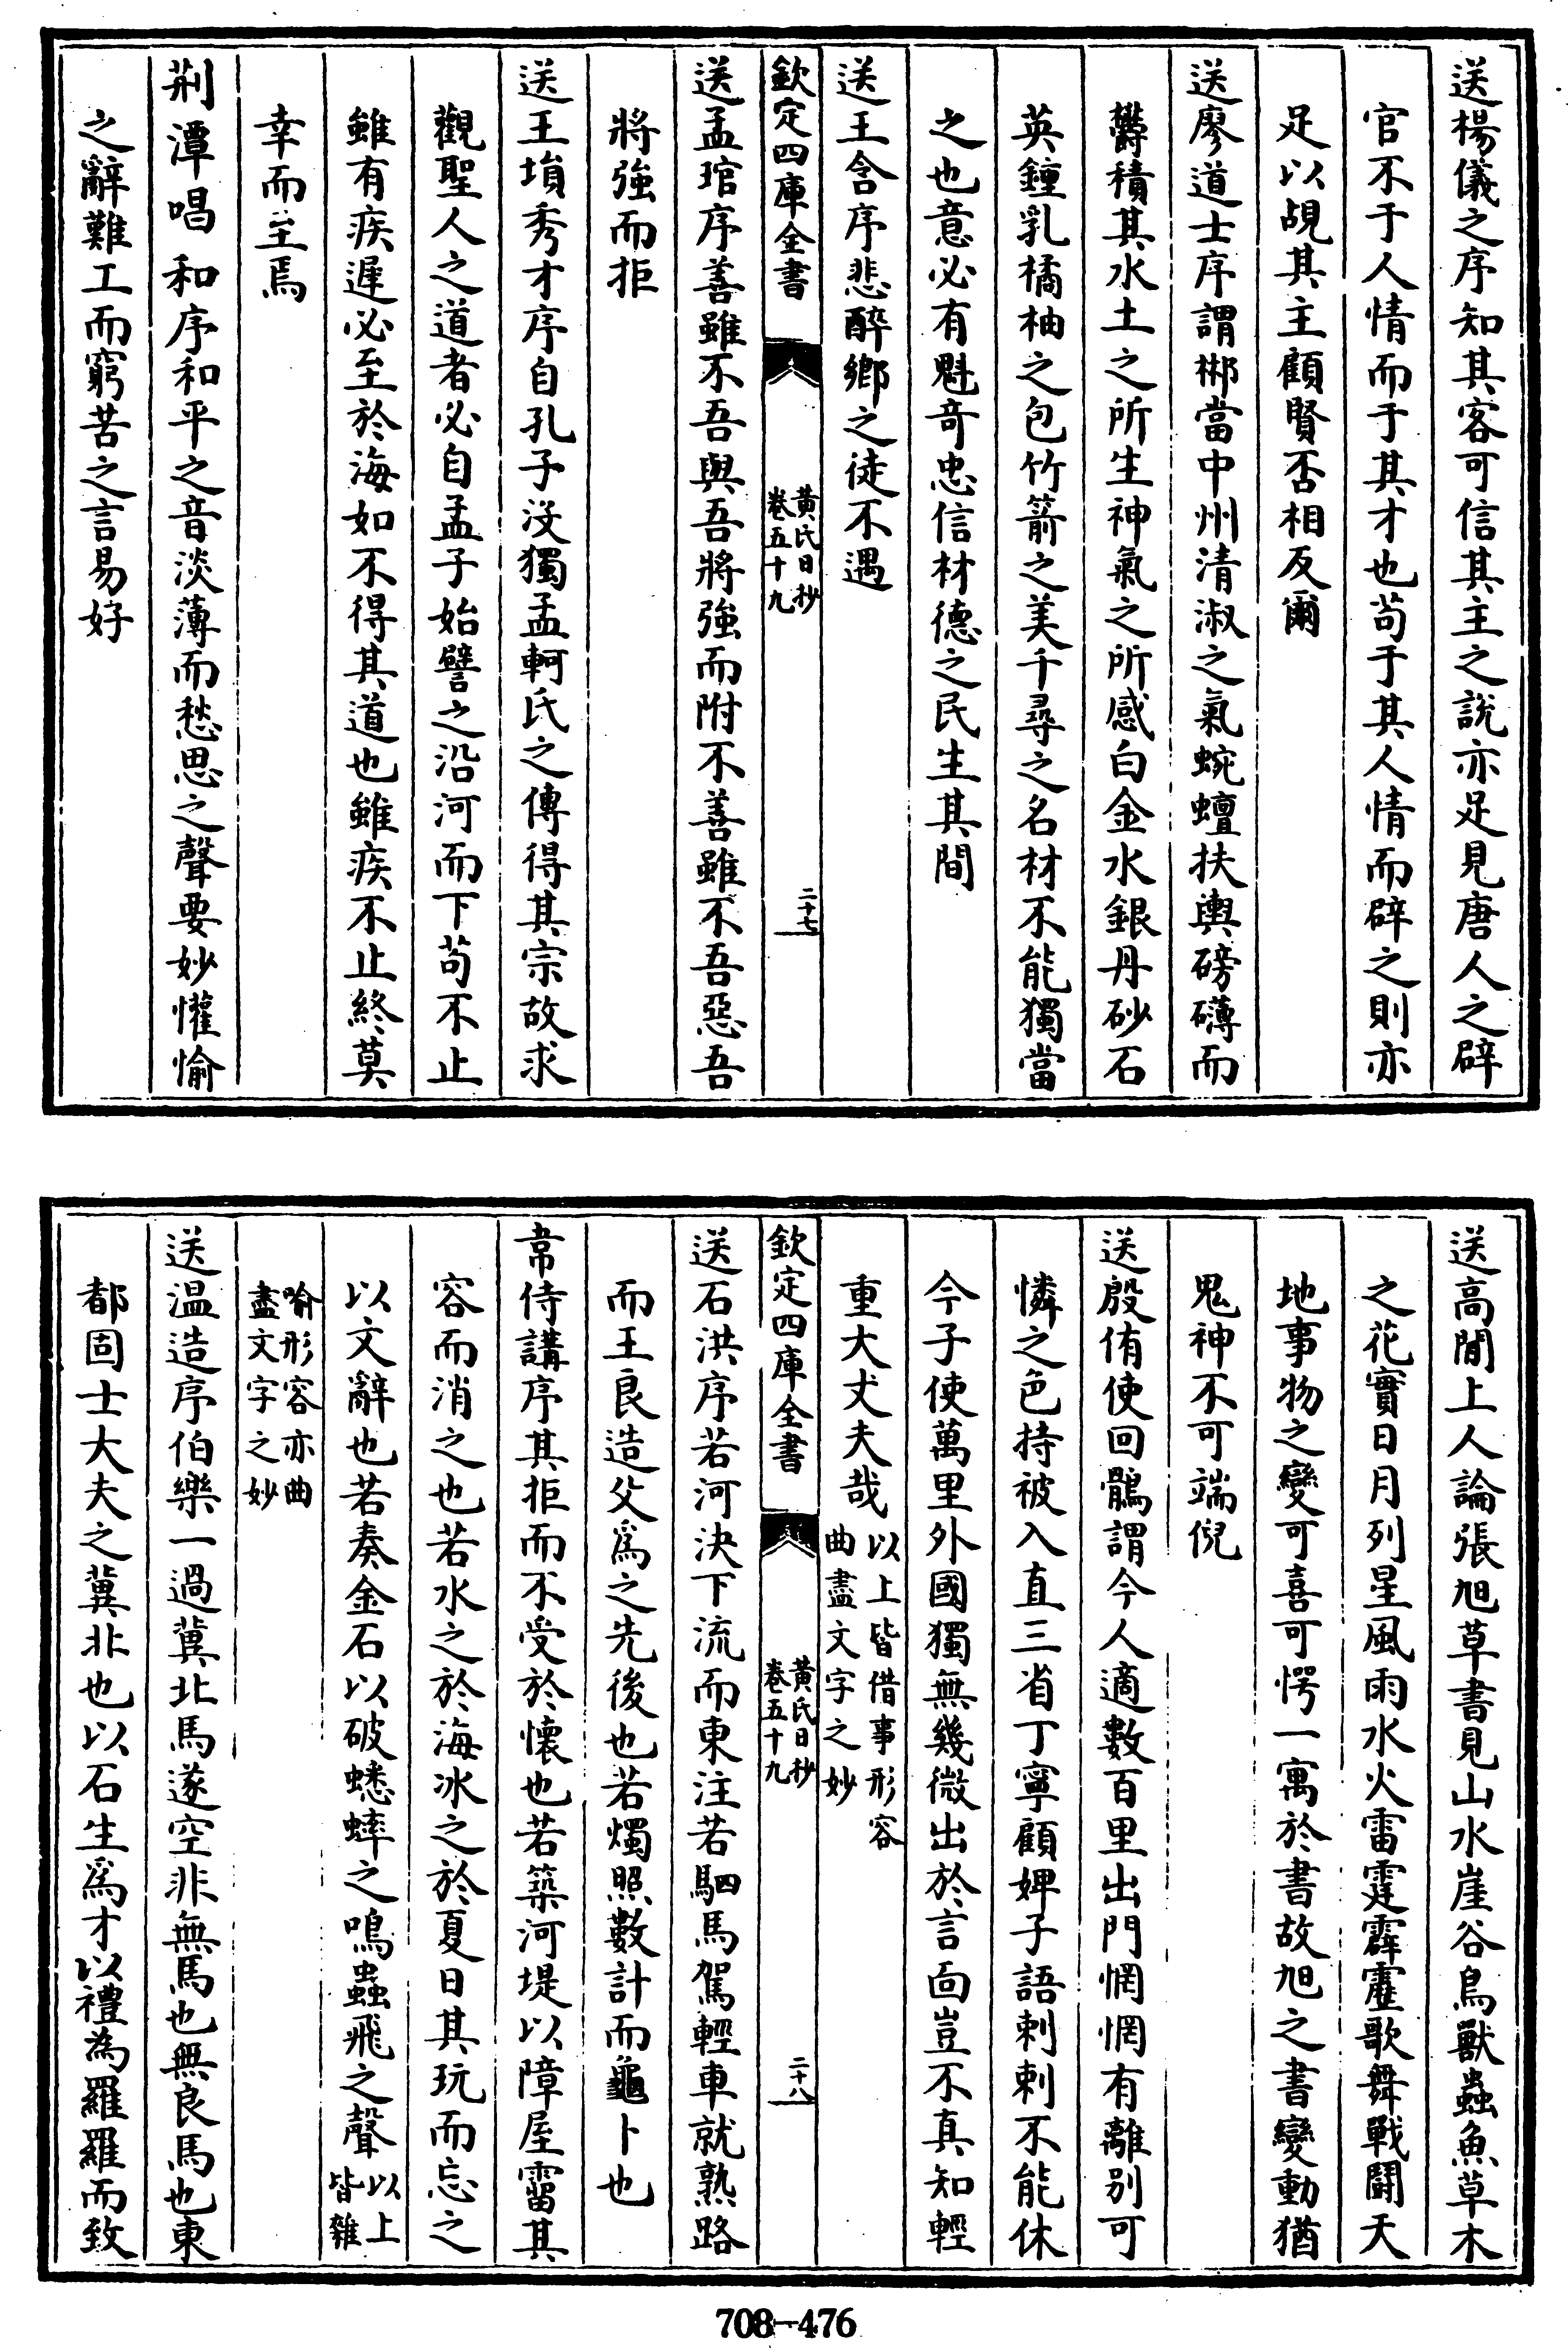 送楊儀之序知其客可信其主之說亦足見唐人之辟
官不于人情而于其才也茍于其人情而辟之則亦
足以覘其主顧賢否相反爾
送廖道士序謂郴當中州清淑之氣蜿蟺扶輿磅礴而
鬱積其水土之所生神氣之所感白金水銀丹砂石
英鐘乳橘柚之包竹箭之美千尋之名材不能獨當
之也意必有魁奇忠信材德之民生其間
送王含序悲醉鄉之徒不遇
欽定四庫全書
黃氏日抄
卷五十九
二十七
送孟琯序善雖不吾與吾將強而附不善雖不吾惡吾
將強而拒
送王塤秀才序自孔子沒獨孟軻氏之傳得其宗故求
觀聖人之道者必自孟子始譬之沿河而下茍不止
雖有疾遲必至於海如不得其道也雖疾不止終莫
幸而至焉
荆潭唱和序和平之音淡薄而愁思之聲要妙懽愉
之辭難工而窮苦之言易好
送高閒上人論張旭草書見山水崖谷鳥獸蟲魚草木
之花實日月列星風雨水火雷霆霹靂歌舞戰鬪天
地事物之變可喜可愕一寓於書故旭之書變動猶
鬼神不可端倪
送殷侑使回鶻謂今人適數百里出門惘惘有離別可
憐之色持被入直三省丁寧顧婢子語剌剌不能休
今子使萬里外國獨無幾微出於言面豈不真知輕
重大丈夫哉以上皆借事形容
曲盡文字之妙
欽定四庫全書
黃氏日抄
卷五十九
二十八
送石洪序若河決下流而東注若駟馬駕輕車就熟路
而王良造父爲之先後也若燭照數計而龜卜也
韋侍講序其拒而不受於懷也若築河堤以障屋霤其
容而消之也若水之於海冰之於夏日其玩而忘之
以文辭也若奏金石以破蟋蟀之鳴蟲飛之聲以上
皆雜
喻形容亦曲
盡文字之妙
送温造序伯樂一過冀北馬遂空非無馬也無良馬也東
都固士大夫之冀北也以石生爲才以禮為羅羅而致
708-476